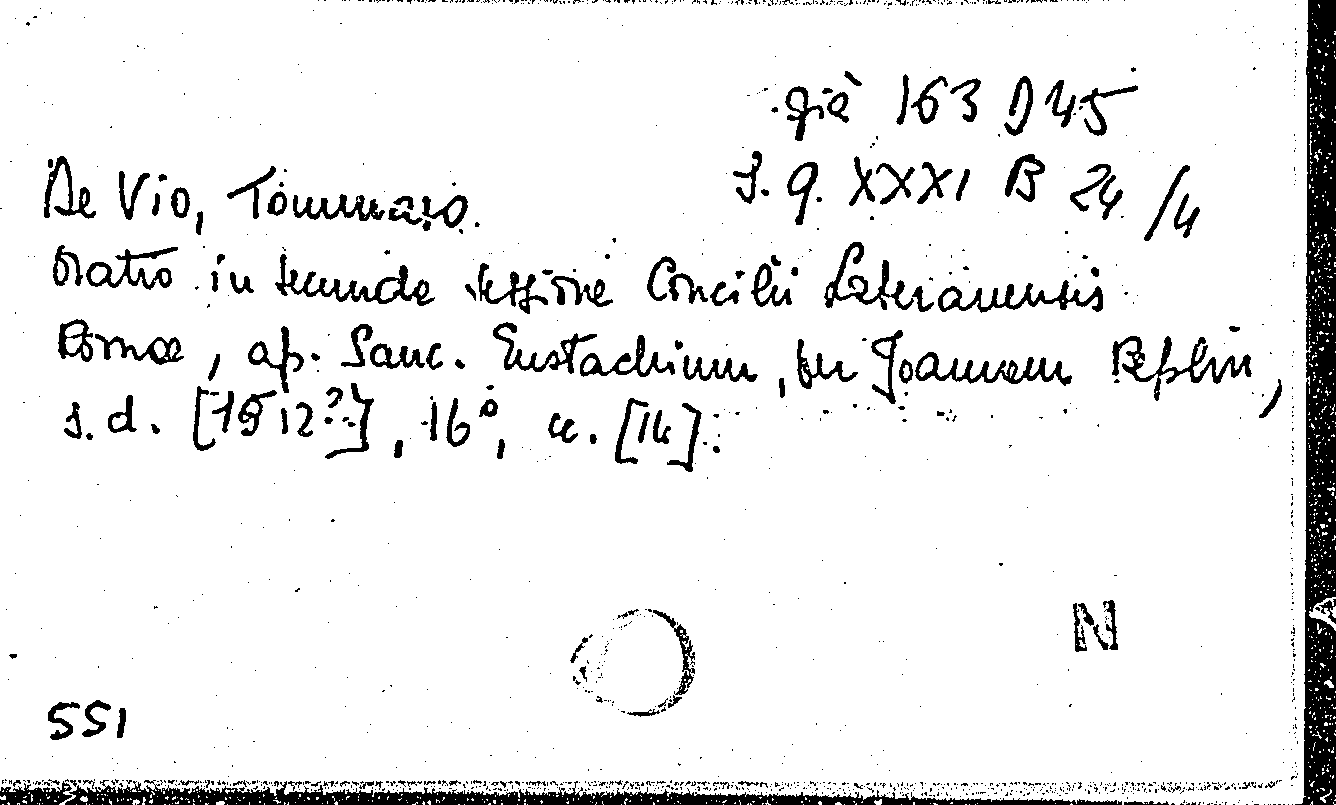 già 163 D 45
S. q. XXXI B 24 /4
De Vio, Tommaso.
Oratio in secunda sessione Concilii Lateranensis
Romae, ap. Sanc. Eustachium, per Joannem Beplin,
s.d. [1512?], 16°, c. [14].
N
551